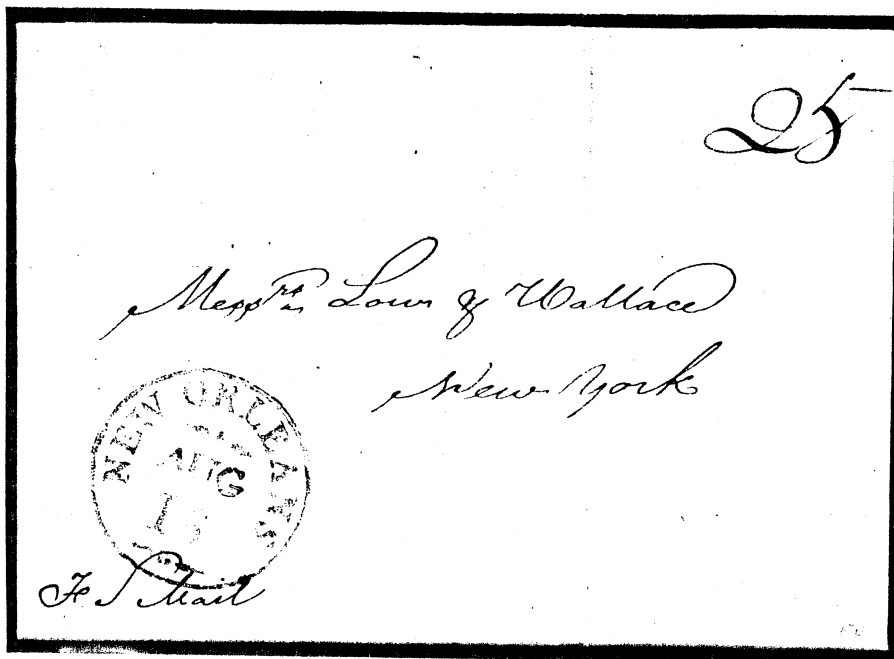 25
Messrs Low & Wallace
New York
NEW ORLEANS
AUG